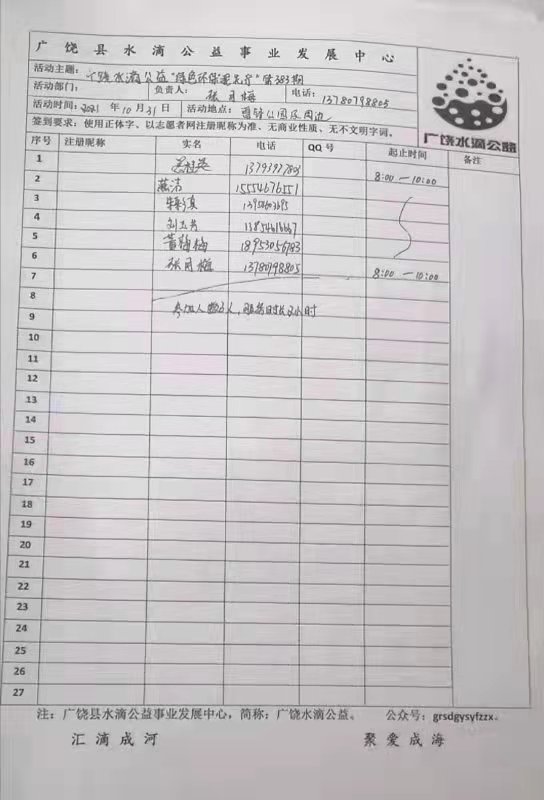 广饶县水滴公益事业发展中心
活动主题:广饶水滴公益"绿色环保要先行"第383期
活动部门: 负责人:张月梅 电话:13780798805
活动时间:2021年10月31日 活动地点:公园及周边
签到要求:使用正体字、以志愿者网注册昵称为准、无商业性质、无不文明字词。
广饶水滴公益
序号 注册昵称 实名 电话 QQ号 起止时间 备注
1 13793977803 8:00—10:00
2 燕洁 15554676551
3 13954603695
4 刘玉芳
5 黄梅 18953056743
6 张月梅 13780798805 8:00—10:00
7
8 参加人数6人,服务时长2小时
9
10
11
12
13
14
15
16
17
18
19
20
21
22
23
24
25
26
27
注:广饶县水滴公益事业发展中心,简称:广饶水滴公益。 公众号:grsdgysyfzzx。
汇滴成河 聚爱成海